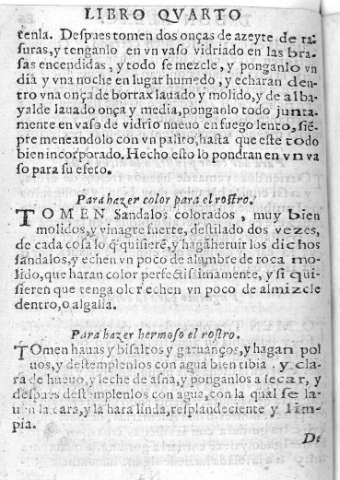 LIBRO QVARTO
tenla. Despues tomen dos onças de azeyte de ra
suras, y tenganlo en vn vaso vidriado en las bra-
sas encendidas, y todo se mezcle, y ponganlo vn
dia y vna noche en lugar humedo, y echaran den-
tro vna onça de borrax lauado y molido, y de alba-
yalde lauado onça y media, ponganlo todo junta-
mente en vaso de vidrio nueuo en fuego lento, siē-
pre meneandolo con vn palito, hasta que este todo
bien incorporado. Hecho esto lo pondran en vn va
so para su efeto.
Para hazer color para el rostro.
TOMEN Sandalos colorados, muy bien
molidos, y vinagre fuerte, destilado dos vezes,
de cada cosa lo q̄ quisierē, y hagā heruir los dichos
sandalos, y echen vn poco de alumbre de roca mo-
lido, que haran color perfectissimamente, y si qui-
sieren que tenga olor echen vn poco de almizcle
dentro, o algalia.
Para hazer hermoso el rostro.
TOmen hauas y bisaltos y garuanços, y hagan pol
uos, y destemplenlos con agua bien tibia, y cla-
ra de hueuo, y leche de asna, y ponganlos a secar, y
despues destemplenlos con agua, con la qual se la-
uen la cara, y la hara linda, resplandeciente y lim-
pia.
De